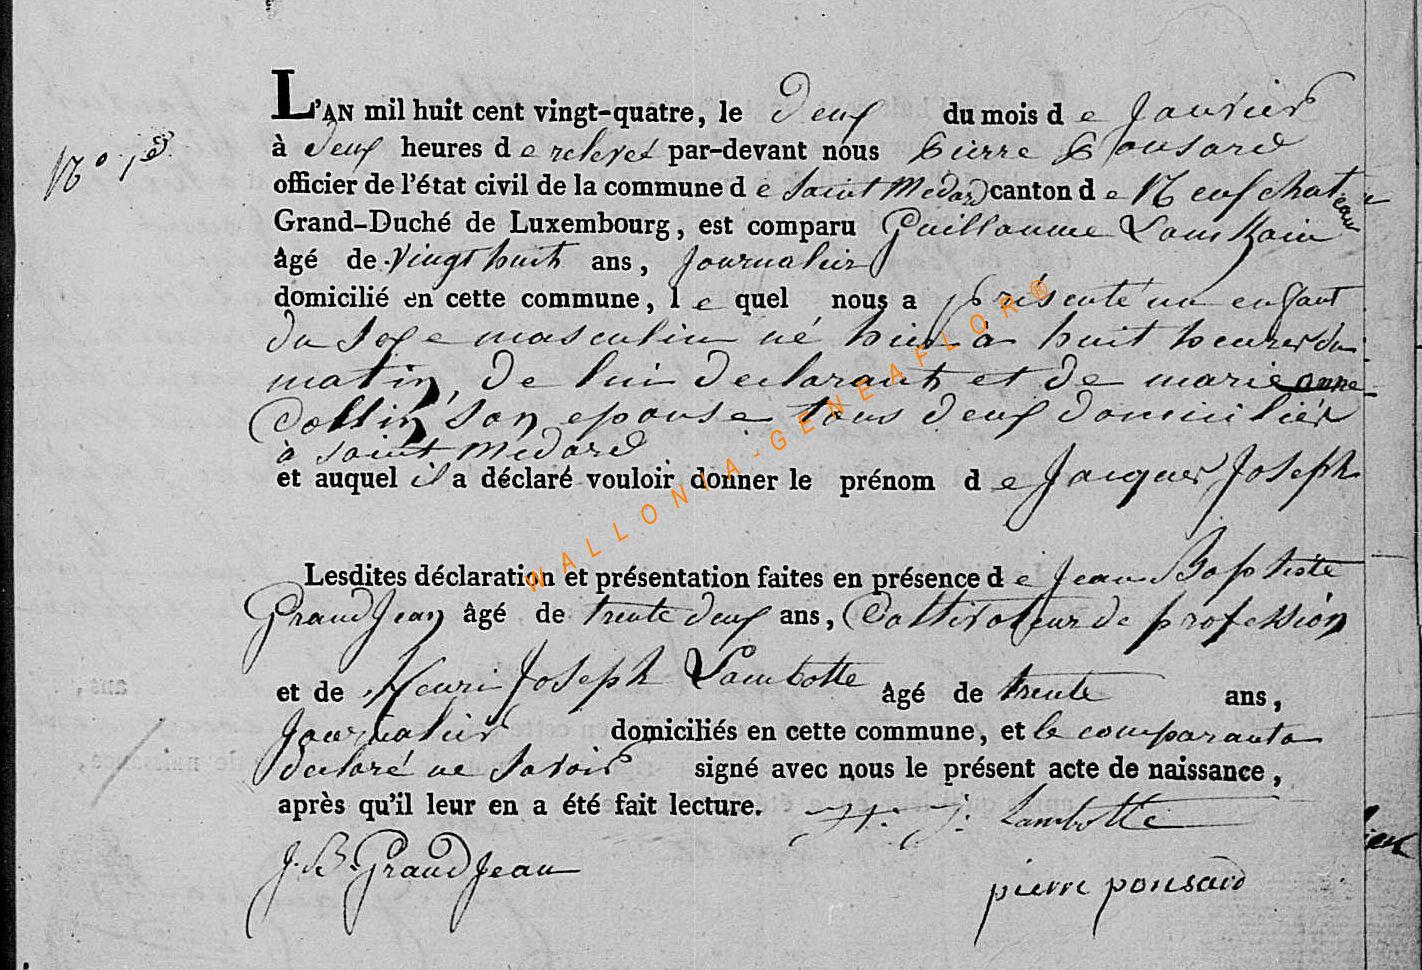 N° 1er
L'AN mil huit cent vingt-quatre, le deux du mois de Janvier
à deux heures de relevée par-devant nous Pierre Ponsard
officier de l'état civil de la commune de Saint Medard canton de Neufchateau
Grand-Duché de Luxembourg, est comparu Guillaume
âgé de vingt huit ans, Journalier
domicilié en cette commune, lequel nous a présenté un enfant
du sexe masculin né hier à huit heures du
matin, de lui declarant et de marie anne
Collin son epouse tous deux domiciliés
à Saint Medard
et auquel il a déclaré vouloir donner le prénom de Jacques Joseph
Lesdites déclaration et présentation faites en présence de Jean Baptiste
GrandJean âgé de trente deux ans, Coltivateur de profession
et de Henri Joseph Lambotte âgé de trente ans,
Journalier domiciliés en cette commune, et le comparant a
declaré ne savoir signé avec nous le présent acte de naissance,
après qu'il leur en a été fait lecture. H. J. Lambotte
J. B. GrandJean
pierre ponsard
WALLONIA-GENEAFLOR®